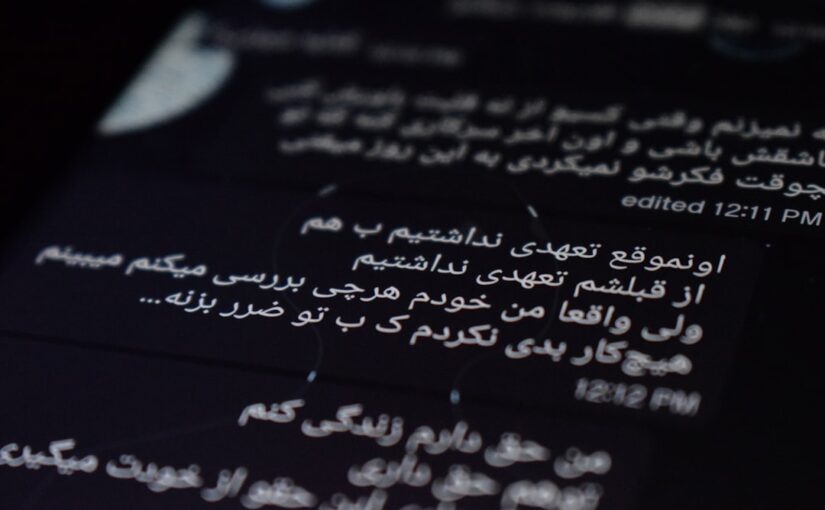 نمیزنم وقتی کسیو از ته قلبت
عاشقش باشی و اون آخر سرکاری کنه که تو
هیچوقت فکرشو نمیکردی به این روز میفتی
edited 12:11 PM
اونموقع تعهدی نداشتیم ب هم
از قبلشم تعهدی نداشتیم
ولی واقعا من خودم هرچی بررسی میکنم میبینم
هیچکار بدی نکردم ک ب تو ضرر بزنه...
12:12 PM
من حق دارم زندگی کنم
توهم حق داری
این حقو از خودت میگیری